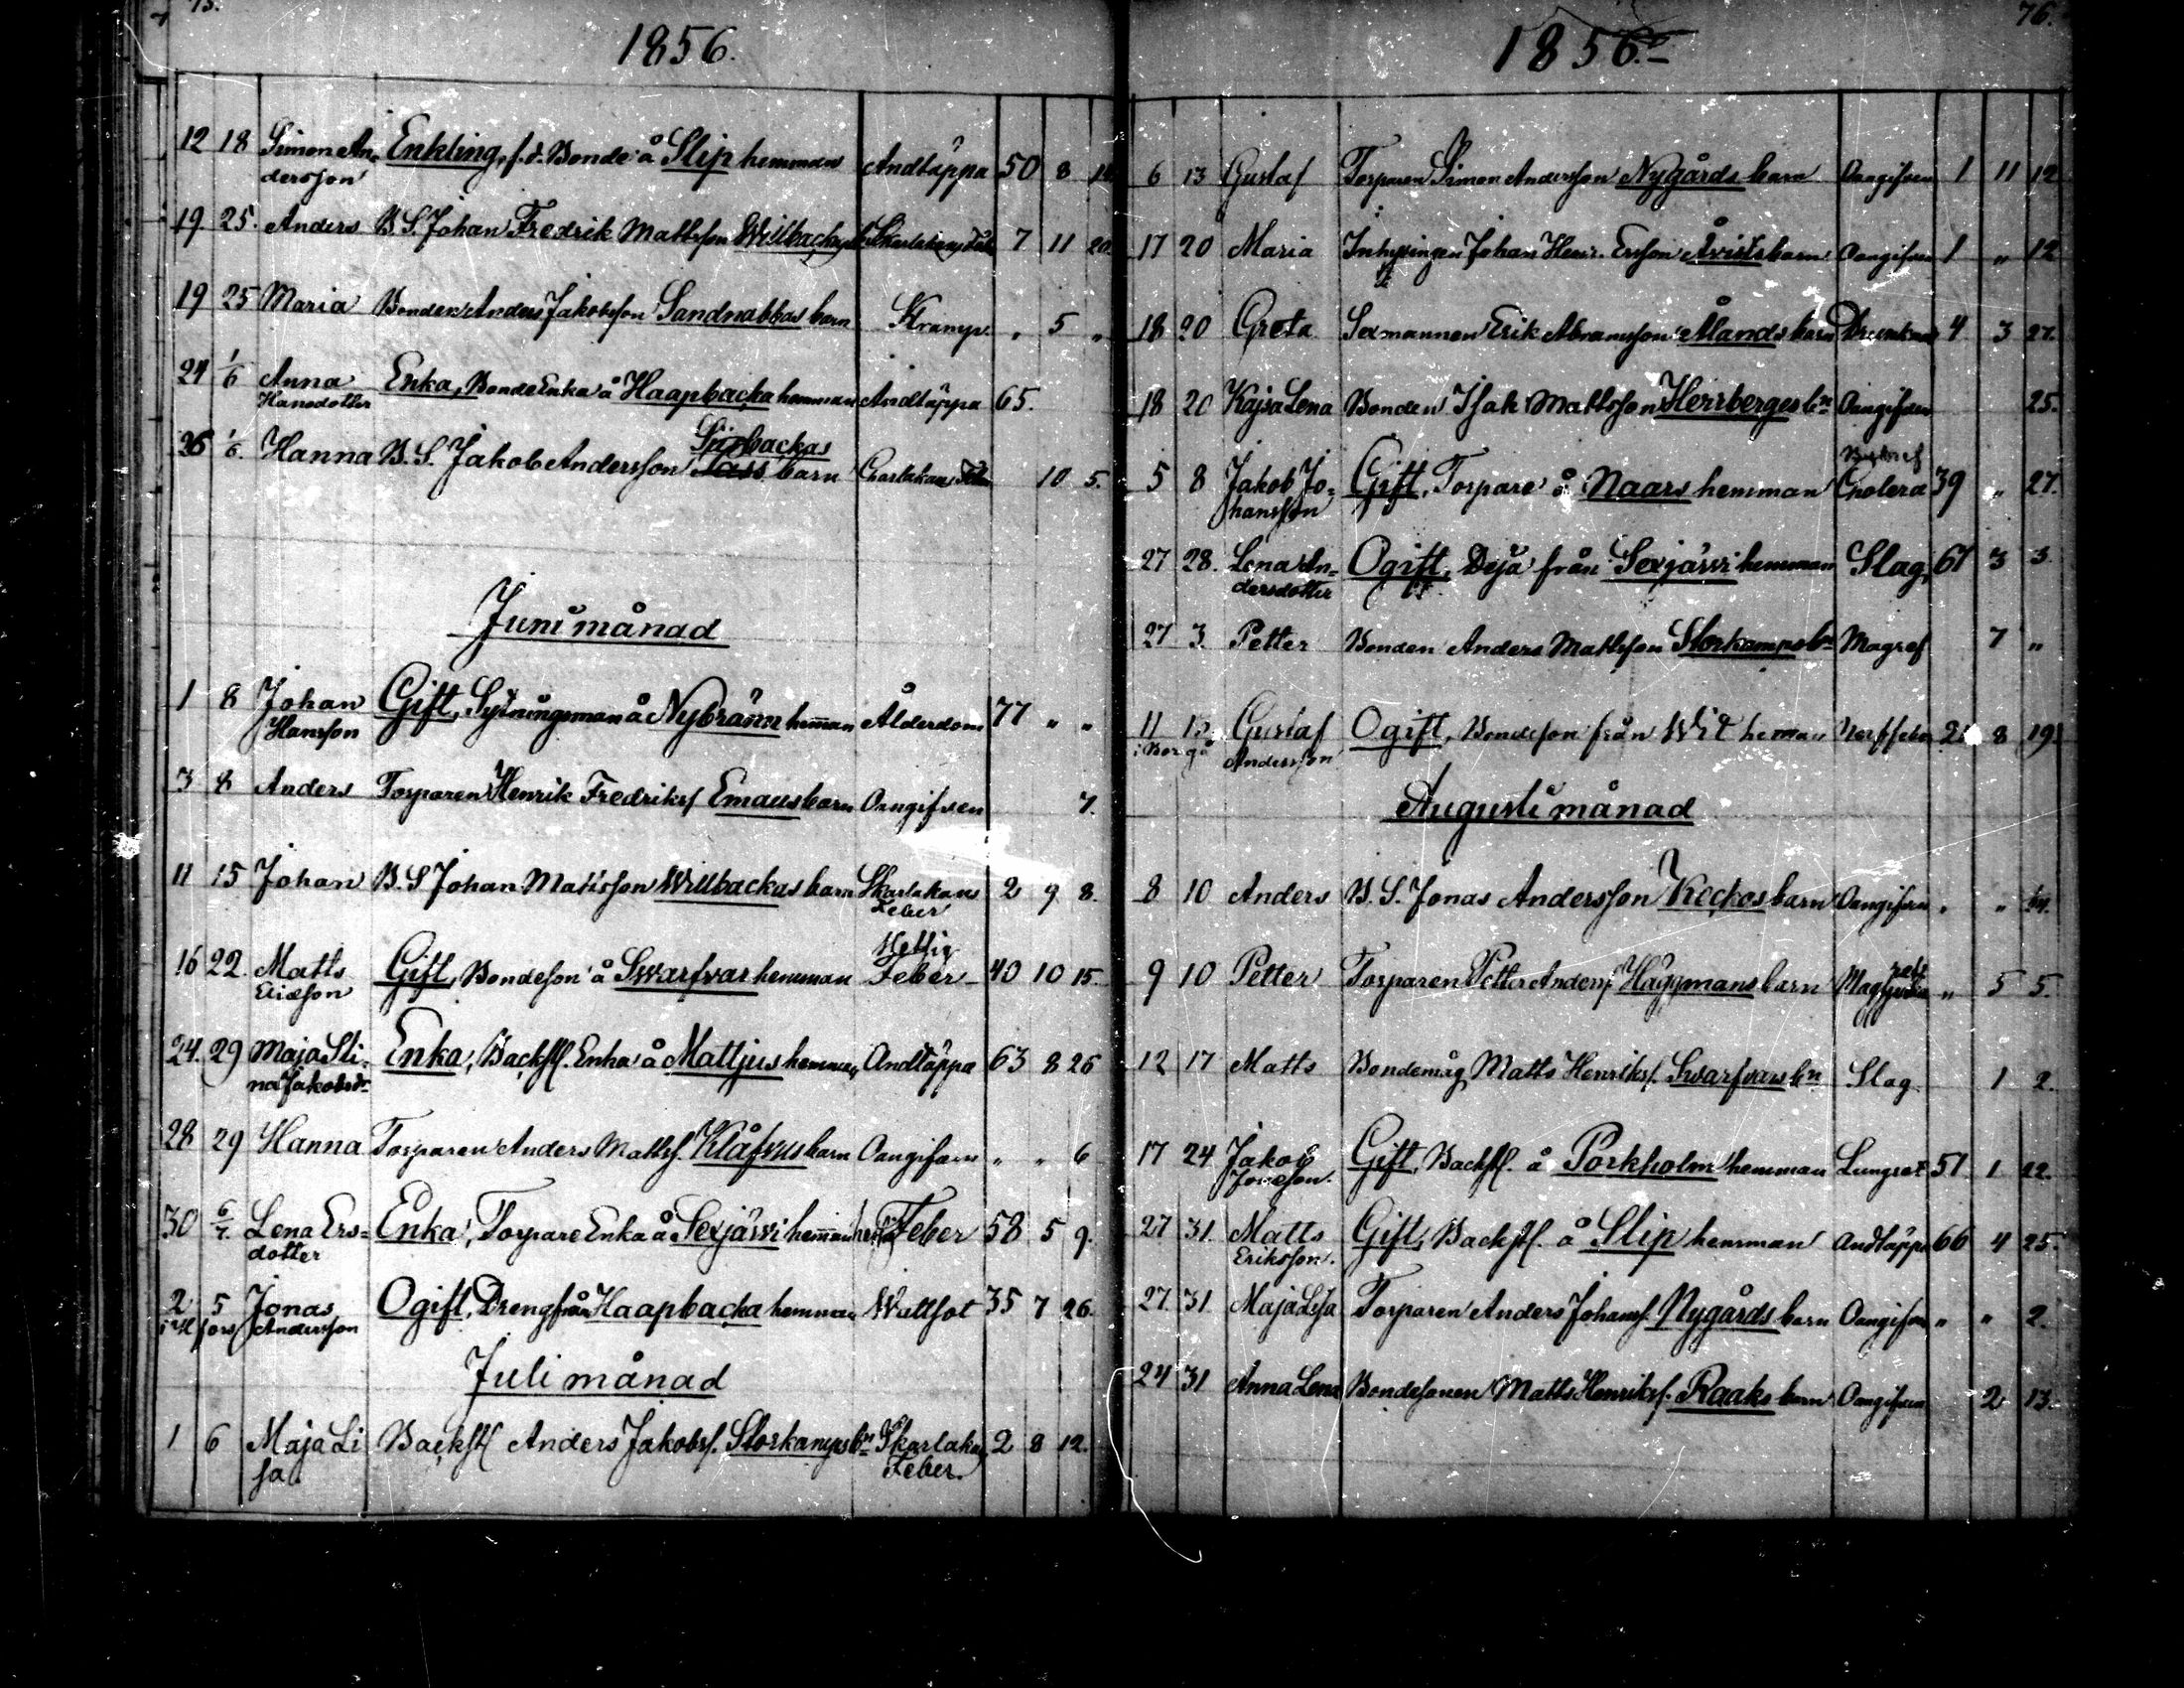 75.
1856.
12 18 Simon An- Enkling, f.d. Bonde å Slip hemman Andtäppa 50 8
dersson
19 25. Anders B.S. Johan Fredrik Mattsson Willbackas 7 11 20.
19 25 Maria Bonden Anders Jakobsson Sandnabbas barn Kramp. " 5 "
24 1/6 Anna Enka, Bonde Enka å Haapbacka hemman Andtäppa 65.
Hansdotter
Sücbackas
26 1/6. Hanna B.S. Jakob Andersson barn Charlakans Feber 10 5.
Juni månad
1 8 Johan Gift, Sytningsman å Nybränn hemman Ålderdom 77 " "
Hansson
3 8 Anders Torparen Henrik Fredrikss Emaus barn Oangifven 7.
11 15 Johan B.S Johan Matsson Willbackas barn Skarlakans 2 9 8.
Feber
Hettig
16 22. Matts Gift, Bondeson å Swarfvar hemman Feber 40 10 15.
Ericsson
24. 29 Maja Sti- Enka, Backst. Enka å Mattjus hemman Andtäppa 63 8 26
na Jakobsdr
28 29 Hanna Torparen Anders Matss. Klåfvus barn Oangifven " " 6
30 6/7. Lena Ers- Enka, Torpare Enka å Sexjärvi hemman Feber 58 5 9.
dotter
2 5 Jonas Ogift, Dreng från Haapbacka hemman Wattsot 35 7 26.
i Hfors Andersson
Juli månad
1 6 Maja Li Backst Anders Jakobss. Storkamps bn Skarlakans 2 8 12.
sa Feber.
76.
1856.
6 13 Gustaf Torparen Simon Andersson Nygårds barn Oangifven 1 11 12
17 20 Maria Inhysingen Johan Henr. Ersson barn Oangifven 1 " 12
18 20 Greta Sexmannen Erik Abramsson Ålands barn Drunknad 4 3 27.
18 20 Kajsa Lena Bonden Isak Mattsson Herrberges bn Oangifven 25.
5 8 Jakob Jo- Gift, Torpare å Naars hemman Cholera 39 " 27.
hansson
27 28. Lena An- Ogift, Deja från Sexjärvi hemman Slag, 61 3 3
dersdotter
27 3. Petter Bonden Anders Mattsson Storkamps bn Magref 7 "
11 13 Gustaf Ogift, Bondeson från Wit heman 8 19
i Borgå Andersson
Augusti månad
8 10 Anders B.S. Jonas Andersson Keckos barn Oangifven " "
9 10 Petter Torparen Petter Anderss Häggmans barn " 5 5.
12 17 Matts Bondemåg Matts Henrikss. Swarfvars bn Slag 1 2.
17 24 Jakob Gift, Backst. å Porkholm hemman Lungsot 51 1 22.
Jonesson.
27 31 Matts Gift, Backst. å Slip hemman Andtäppa 66 4 25.
Eriksson.
27. 31 Maja Lisa Torparen Anders Johanss. Nygårds barn Oangifven " " 2.
24 31 Anna Lena Bondesonen Matts Henrikss. Raaks barn Oangifven 2 13.